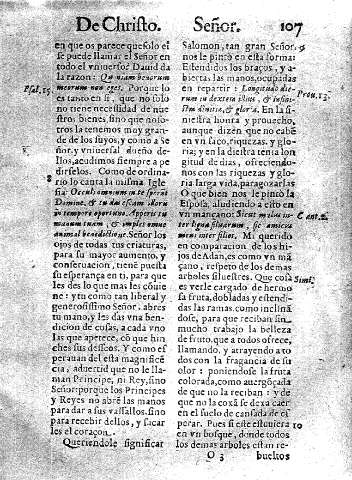 De Christo. Señor. 107
en que os parece quesolo el
se puede llamar el Señor en
todo el vniuerso? Dauid da
la razon: Quoniam bonorum
meorum non eges. Porque lo
es tanto en si, que no solo
no tiene necessidad de nue
stros bienes, sino que noso-
tros la tenemos muy gran-
de de los suyos, y como a Se
ñor, y vniuersal dueño de-
llos, acudimos siempre a pe
dirselos. Como de ordina-
rio lo canta la misma Igle
sia: Oculi omnium in te sperāt
Domine, & tu das escam illorū
in tempore oportuno. Apperis tu
manum tuam, & imples omne
animal benedictione. Señor los
ojos de todas tus criaturas,
para su mayor aumento, y
conseruacion, tienē puesta
su esperança en ti, para que
les des lo que mas les cōuie
ne: y tu como tan liberal y
generosissimo Señor, abres
tu mano, y les das vna ben-
dicion de cosas, a cada vno
las que apetece, cō que hin
ches sus desseos. Y como es
peauan del esta magnificē
cia, aduertid que no le lla-
man Principe, ni Rey, sino
Señor: porque los Principes
y Reyes no abrē las manos
para dar a sus vassallos, sino
para recebir dellos, y sacar
les el coraçon.
Queriendole significar
Psal. 15.
8
Salomon, tan gran Señor,
nos le pintò en esta forma:
Estendidos los braços, y a-
biertas las manos, ocupadas
en repartir: Longitudo die-
rum in dextera illius, & in sinis
tra diuitiæ, & gloria. En la si-
niestra honra y prouecho,
aunque dizen que no cabē
en vn saco, riquezas, y glo-
ria; y en la diestra tēnia lon
gitud de dias, ofreciendo-
nos con las riquezas y glo-
ria larga vida, para gozarlas
O que bien nos le pintò la
Esposa, aludiendo a esto en
vn mançano: Sicut malus in-
ter ligna siluarum, sic amicus
meus inter filios. Mi querido
en comparacion de los hi-
jos de Adan, es como vn mā
çano, respeto de los demas
arboles siluestres. Que cosa
es verle cargado de hermo
sa fruta, dobladas y estendi-
das las ramas, como inclinā
dose, para que reciban sin
mucho trabajo la belleza
de fruto, que a todos ofrece,
llamando, y arrayendo a to
dos con la fragancia de su
olor: poniendose la fruta
colorada, como auergōçada
de que no la reciban: y de
que no la coxā se dexa caer
en el suelo de cansada de es
perar. Pues si este estuuiera
en vn bosque, donde todos
los demas arboles estan re-
Prou. 13.
Cant. 2.
Simil.
10
O 3 bueltos